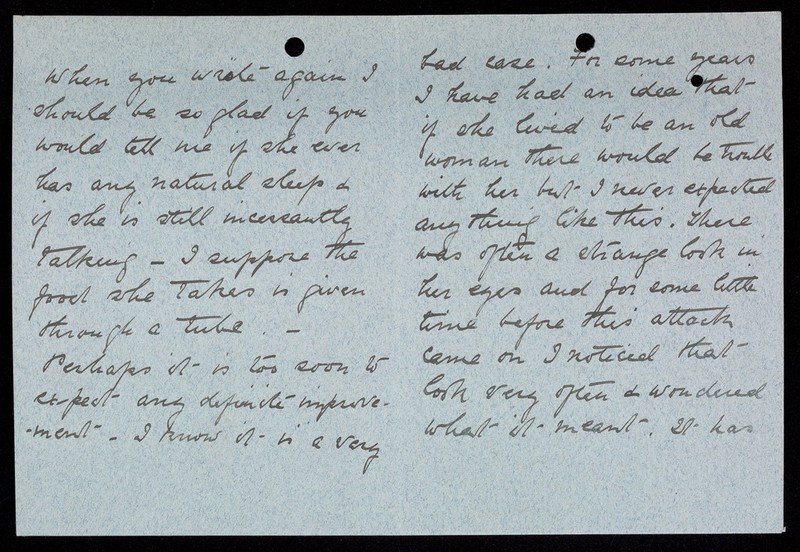 When you write again I
should be so glad if you
would tell me if she ever
has any natural sleep &
if she is still incessantly
talking – I suppose the
food she takes is given
through a tube. –
Perhaps it is too soon to
expect any definite improve-
-ment – I know it is a very
bad case. For some years
I have had an idea that
if she lived to be an old
woman there would be trouble
with her but I never expected
anything like this. There
was often a strange look in
her eyes and for some little
time before this attack
came on I noticed that
look very often & wondered
what it meant. It has